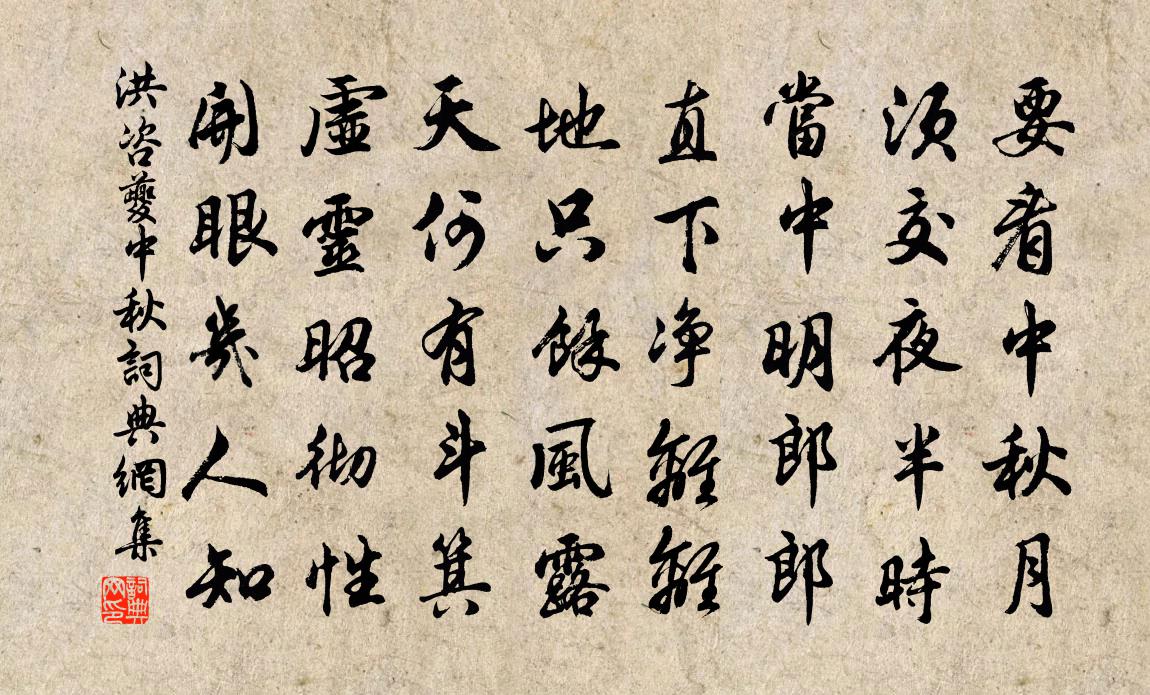 要看中秋月
須交夜半時
當中明郎郎
直下净離離
地只餘風露
天何有斗箕
虛靈昭彻性
開眼幾人知
洪咨夔中秋詞典網集
詞典网印